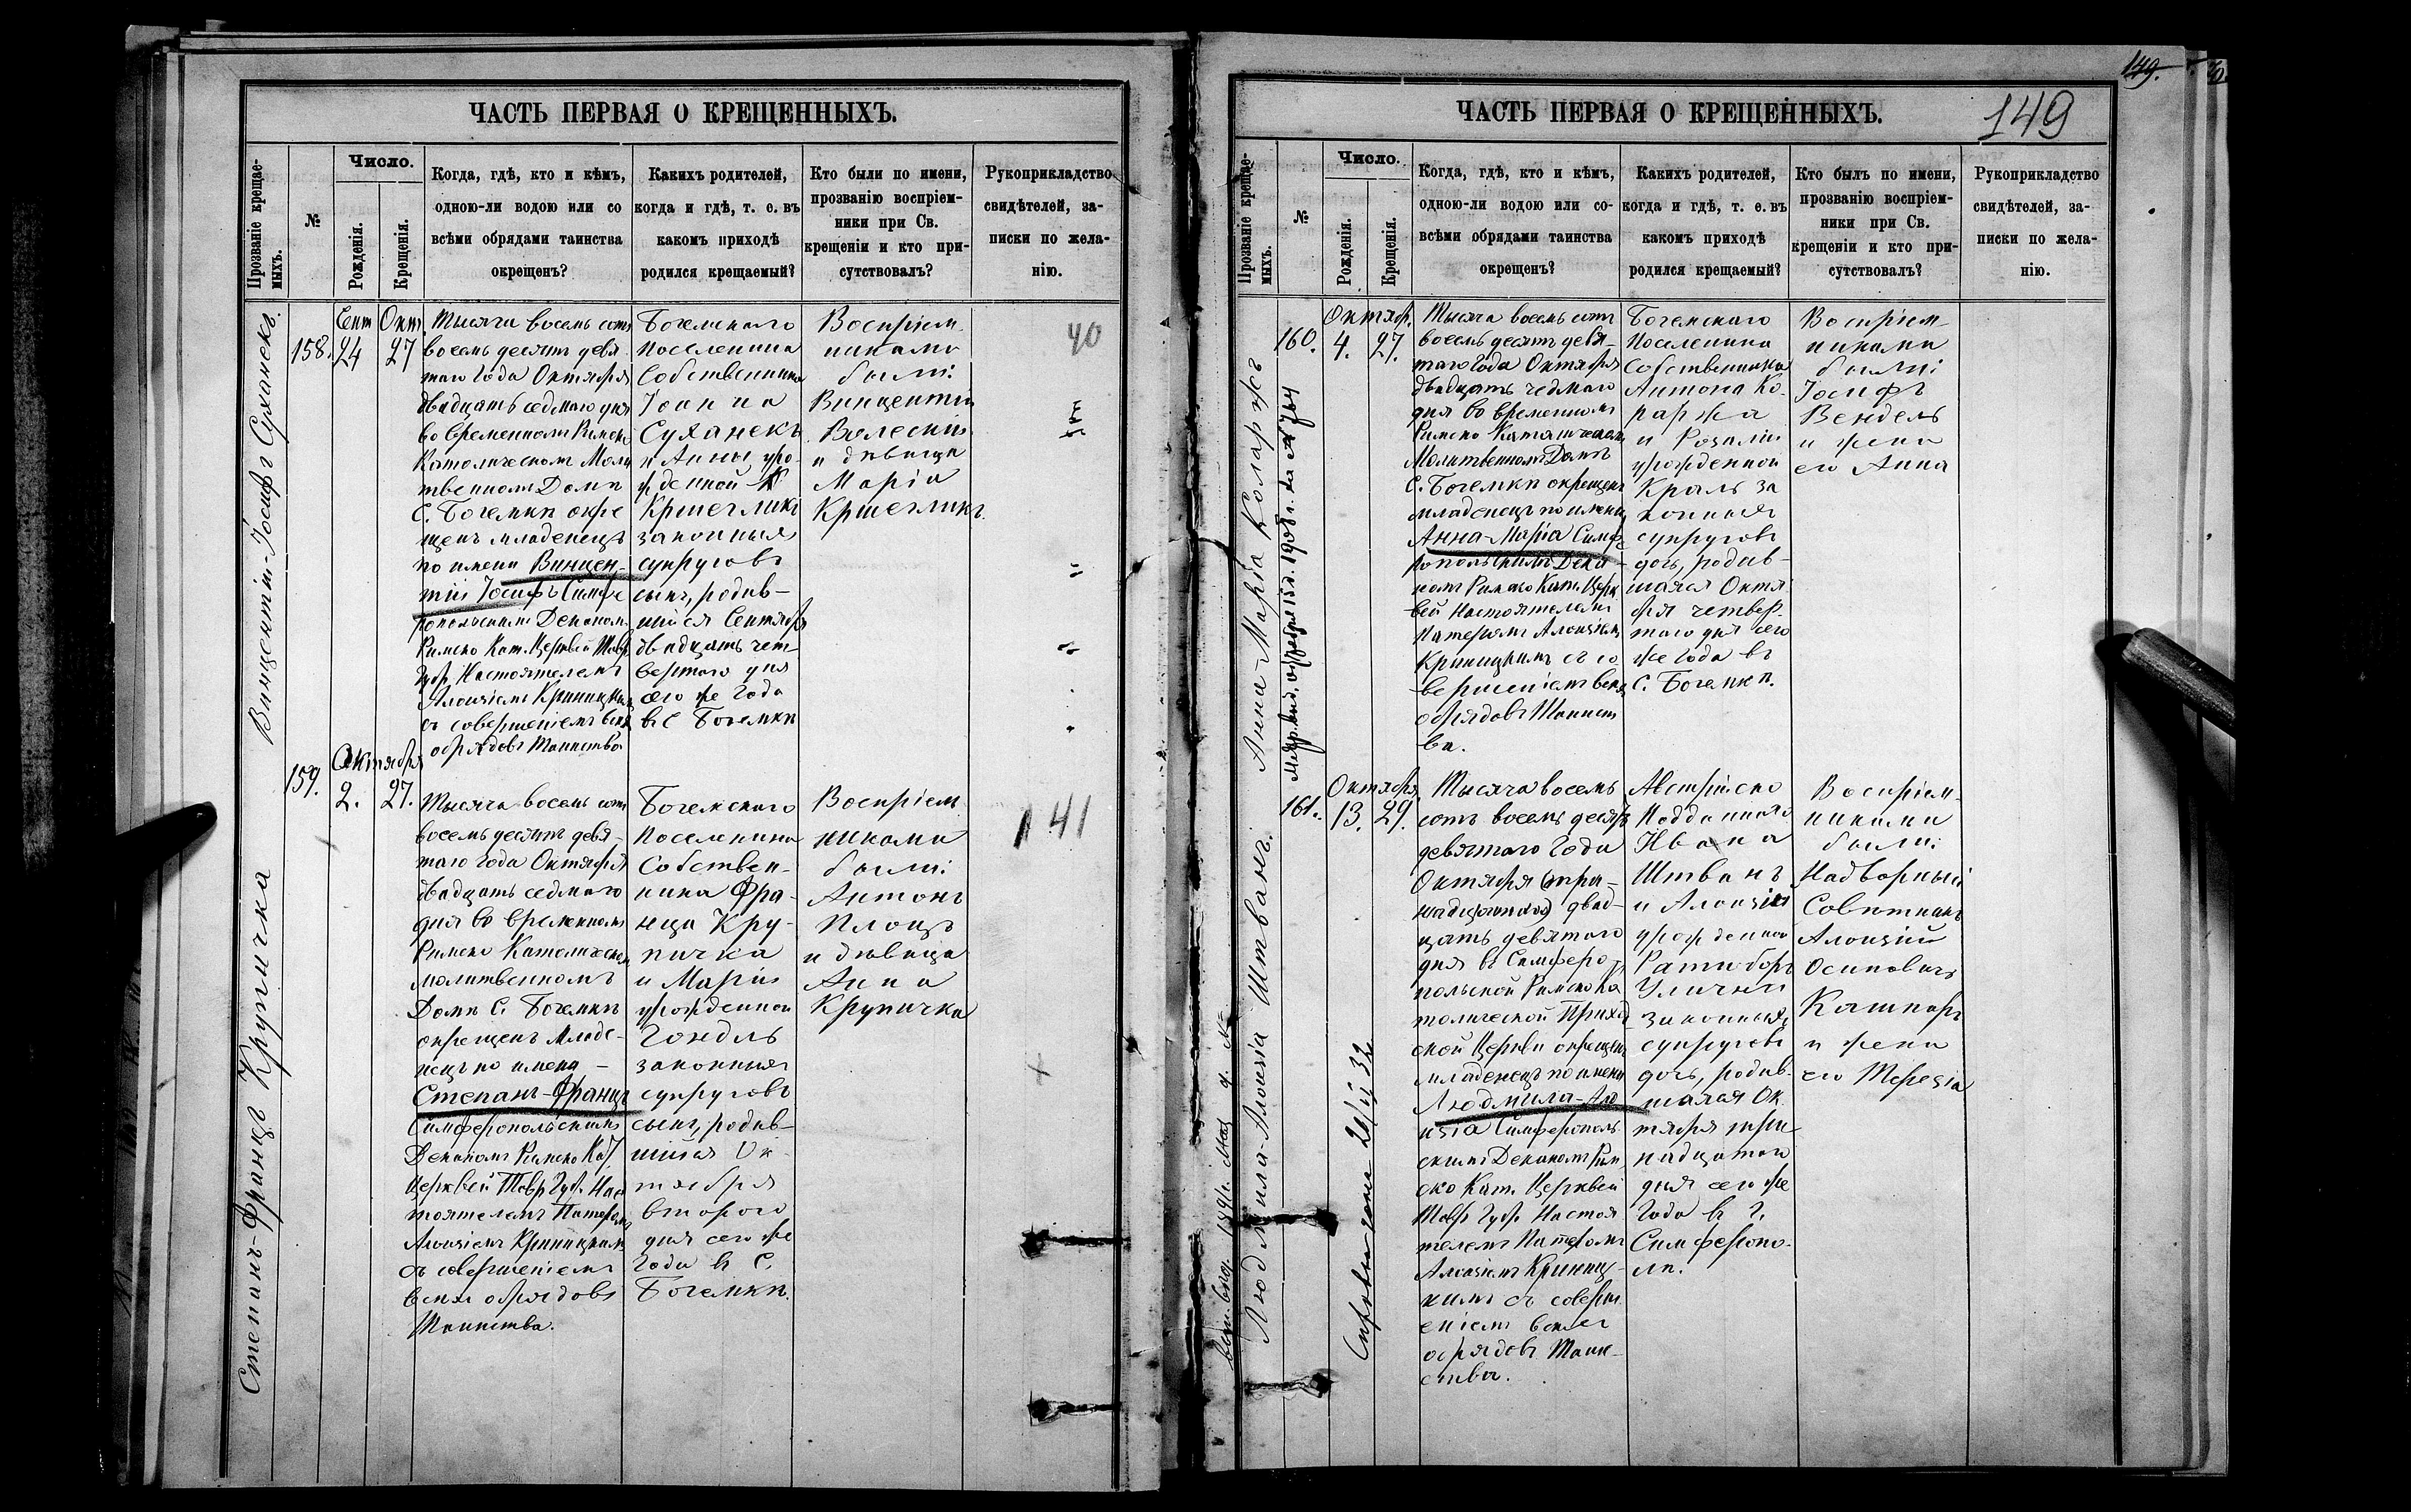 ЧАСТЬ ПЕРВАЯ О КРЕЩЕННЫХЪ.
Прозваніе крещае-
мыхъ.
№
Число.
Рожденія.
Крещенія.
Когда, гдѣ, кто и кѣмъ,
одною-ли водою или со
всѣми обрядами таинства
окрещенъ?
Какихъ родителей,
когда и гдѣ, т. е. въ
какомъ приходѣ
родился крещаемый?
Кто были по имени,
прозванію воспріем-
ники при Св.
крещеніи и кто при-
сутствовалъ?
Рукоприкладство
свидѣтелей, за-
писки по жела-
нію.
Винцентій-Іосифъ Суханекъ.
158.
Сент
24
Окт
27
Тысяча восемь сотъ
восемьдесятъ девя
таго года Октября
двадцать седмаго дня
во временномъ Римско
Католическомъ Моли
твенномъ Домѣ
С. Богемкѣ окре
щенъ младенецъ
по имени Винцен-
тій Іосифъ Симфе
ропольскимъ Деканом
Римско Кат. Церквей Тавр
Губ. Настоятелемъ
Алоизіем Криницким
съ совершеніемъ всѣх
обрядовъ Таинства
Богемскаго
поселенина
Собственника
Іоанна
Суханекъ
и Анны уро
жденной К
Кршечликъ
законныхъ
супруговъ
сынъ, родив-
шійся Сентября
двадцать чет-
вертаго дня
сего же года
въ С Богемкѣ
Воспріем
никами
были:
Винцентій
и дѣвица
Марія
Кршечликъ.
40
Степанъ-Францъ Крупичка
159.
Октября
2.
27.
Тысяча восемь сотъ
восемьдесятъ девя-
таго года Октября
двадцать седмаго
дня во временномъ
Римско Католическом
молитвенномъ
Домѣ С. Богемкѣ
окрещенъ младе-
нецъ по имени -
Степанъ-Францъ
Симферопольскимъ
Деканомъ Римско Кат.
Церквей Тавр Губ. Нас
тоятелемъ Патером
Алоизіемъ Криницкимъ
съ совершеніемъ
всѣхъ обрядовъ
Таинства.
Богемскаго
поселенина
Собствен-
ника Фра-
нца Кру-
пичка
и Маріи
урожденной
Гондль
законныхъ
супруговъ
сынъ, родив-
шійся Ок-
тября
втораго
дня сего же
года въ С.
Богемкѣ.
Воспріем
никами
были:
Антонъ
Плоцъ
и дѣвица
Анна
Крупичка
41
149.
149
ЧАСТЬ ПЕРВАЯ О КРЕЩЕННЫХЪ.
Прозваніе крещае-
мыхъ.
№
Число.
Рожденія.
Крещенія.
Когда, гдѣ, кто и кѣмъ,
одною-ли водою или со-
всѣми обрядами таинства
окрещенъ?
Какихъ родителей,
когда и гдѣ, т. е. въ
какомъ приходѣ
родился крещаемый?
Кто былъ по имени,
прозванію воспріем-
ники при Св.
крещеніи и кто при-
сутствовалъ?
Рукоприкладство
свидѣтелей, за-
писки по жела-
нію.
Анна-Марія Коларжъ
160.
Октябр.
4.
27.
Тысяча восемь сотъ
восемьдесятъ девя-
таго года Октября
двадцать седмаго
дня во временномъ
Римско Католическом
Молитвенномъ Домѣ
С. Богемкѣ окрещенъ
младенецъ по имени
Анна-Марія Симфе
ропольскимъ Дека-
номъ Римско Кат. Церк
вей Настоятелемъ
Патеромъ Алоизіем
Криницкимъ съ со
вершеніемъ всѣх
обрядовъ Таинст
ва.
Богемскаго
поселенина
Собственника
Антона Ко-
ларжа
и Розаліи
урожденной
Краль за
конныхъ
супруговъ
дочь, родив-
шаяся Октя
бря четвер
таго дня сего
же года въ
С. Богемкѣ.
Воспріем-
никами
были:
Іосифъ
Вендель
и жена
его Анна
Людмила-Алоизія Штванъ.
161.
Октября
13.
29.
Тысяча восемь
сотъ восемь десятъ
девятаго года
Октября (три-
надцатаго) двад-
цать девятаго
дня въ Симферо-
польской Римско Ка
толической Приход
ской Церкви окрещенъ
младенецъ по имени
Людмила-Ало
изіа Симферополь
скимъ Деканомъ Рим
ско Кат. Церквей
Тавр Губ. Настоя
телемъ Патеромъ
Алоизіемъ Криниц-
кимъ съ соверш
еніемъ всѣхъ
обрядовъ Таин-
ства.
Австрійско
Подданнаго
Ивана
Штванъ
и Алоизіи
урожденной
законныхъ
супруговъ
дочь, родив-
шаяся Ок
тября три-
надцатаго
дня сего же
года въ г.
Симферопо-
лѣ.
Воспріем-
никами
были:
Надворный
Совѣтникъ
Алоизій
Осиповичъ
Кашпаръ
и жена
его Терезія